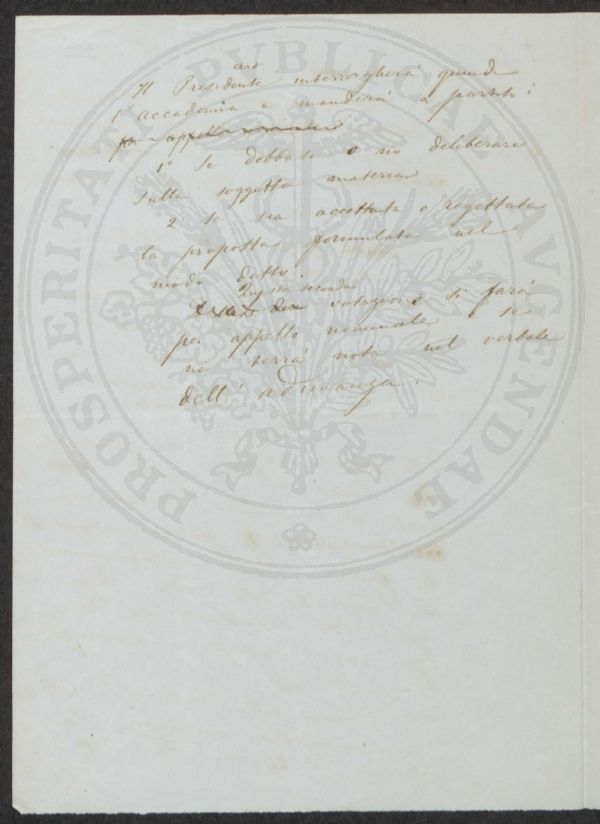 art.
Il Presidente interrogherà quindi
l'accademia e manderà a partiti:
per appello nominale
1º se debbasi o no deliberare
sulla soggetta materia
2 se sia accettata o rigettata
la proposta formulata nel
modo detto.
Questa seconda
votazione si farà
per appello nominale e se
ne terrà nota nel verbale
dell'adunanza.
PROSPERITATI PVBLICAE AVGENDAE